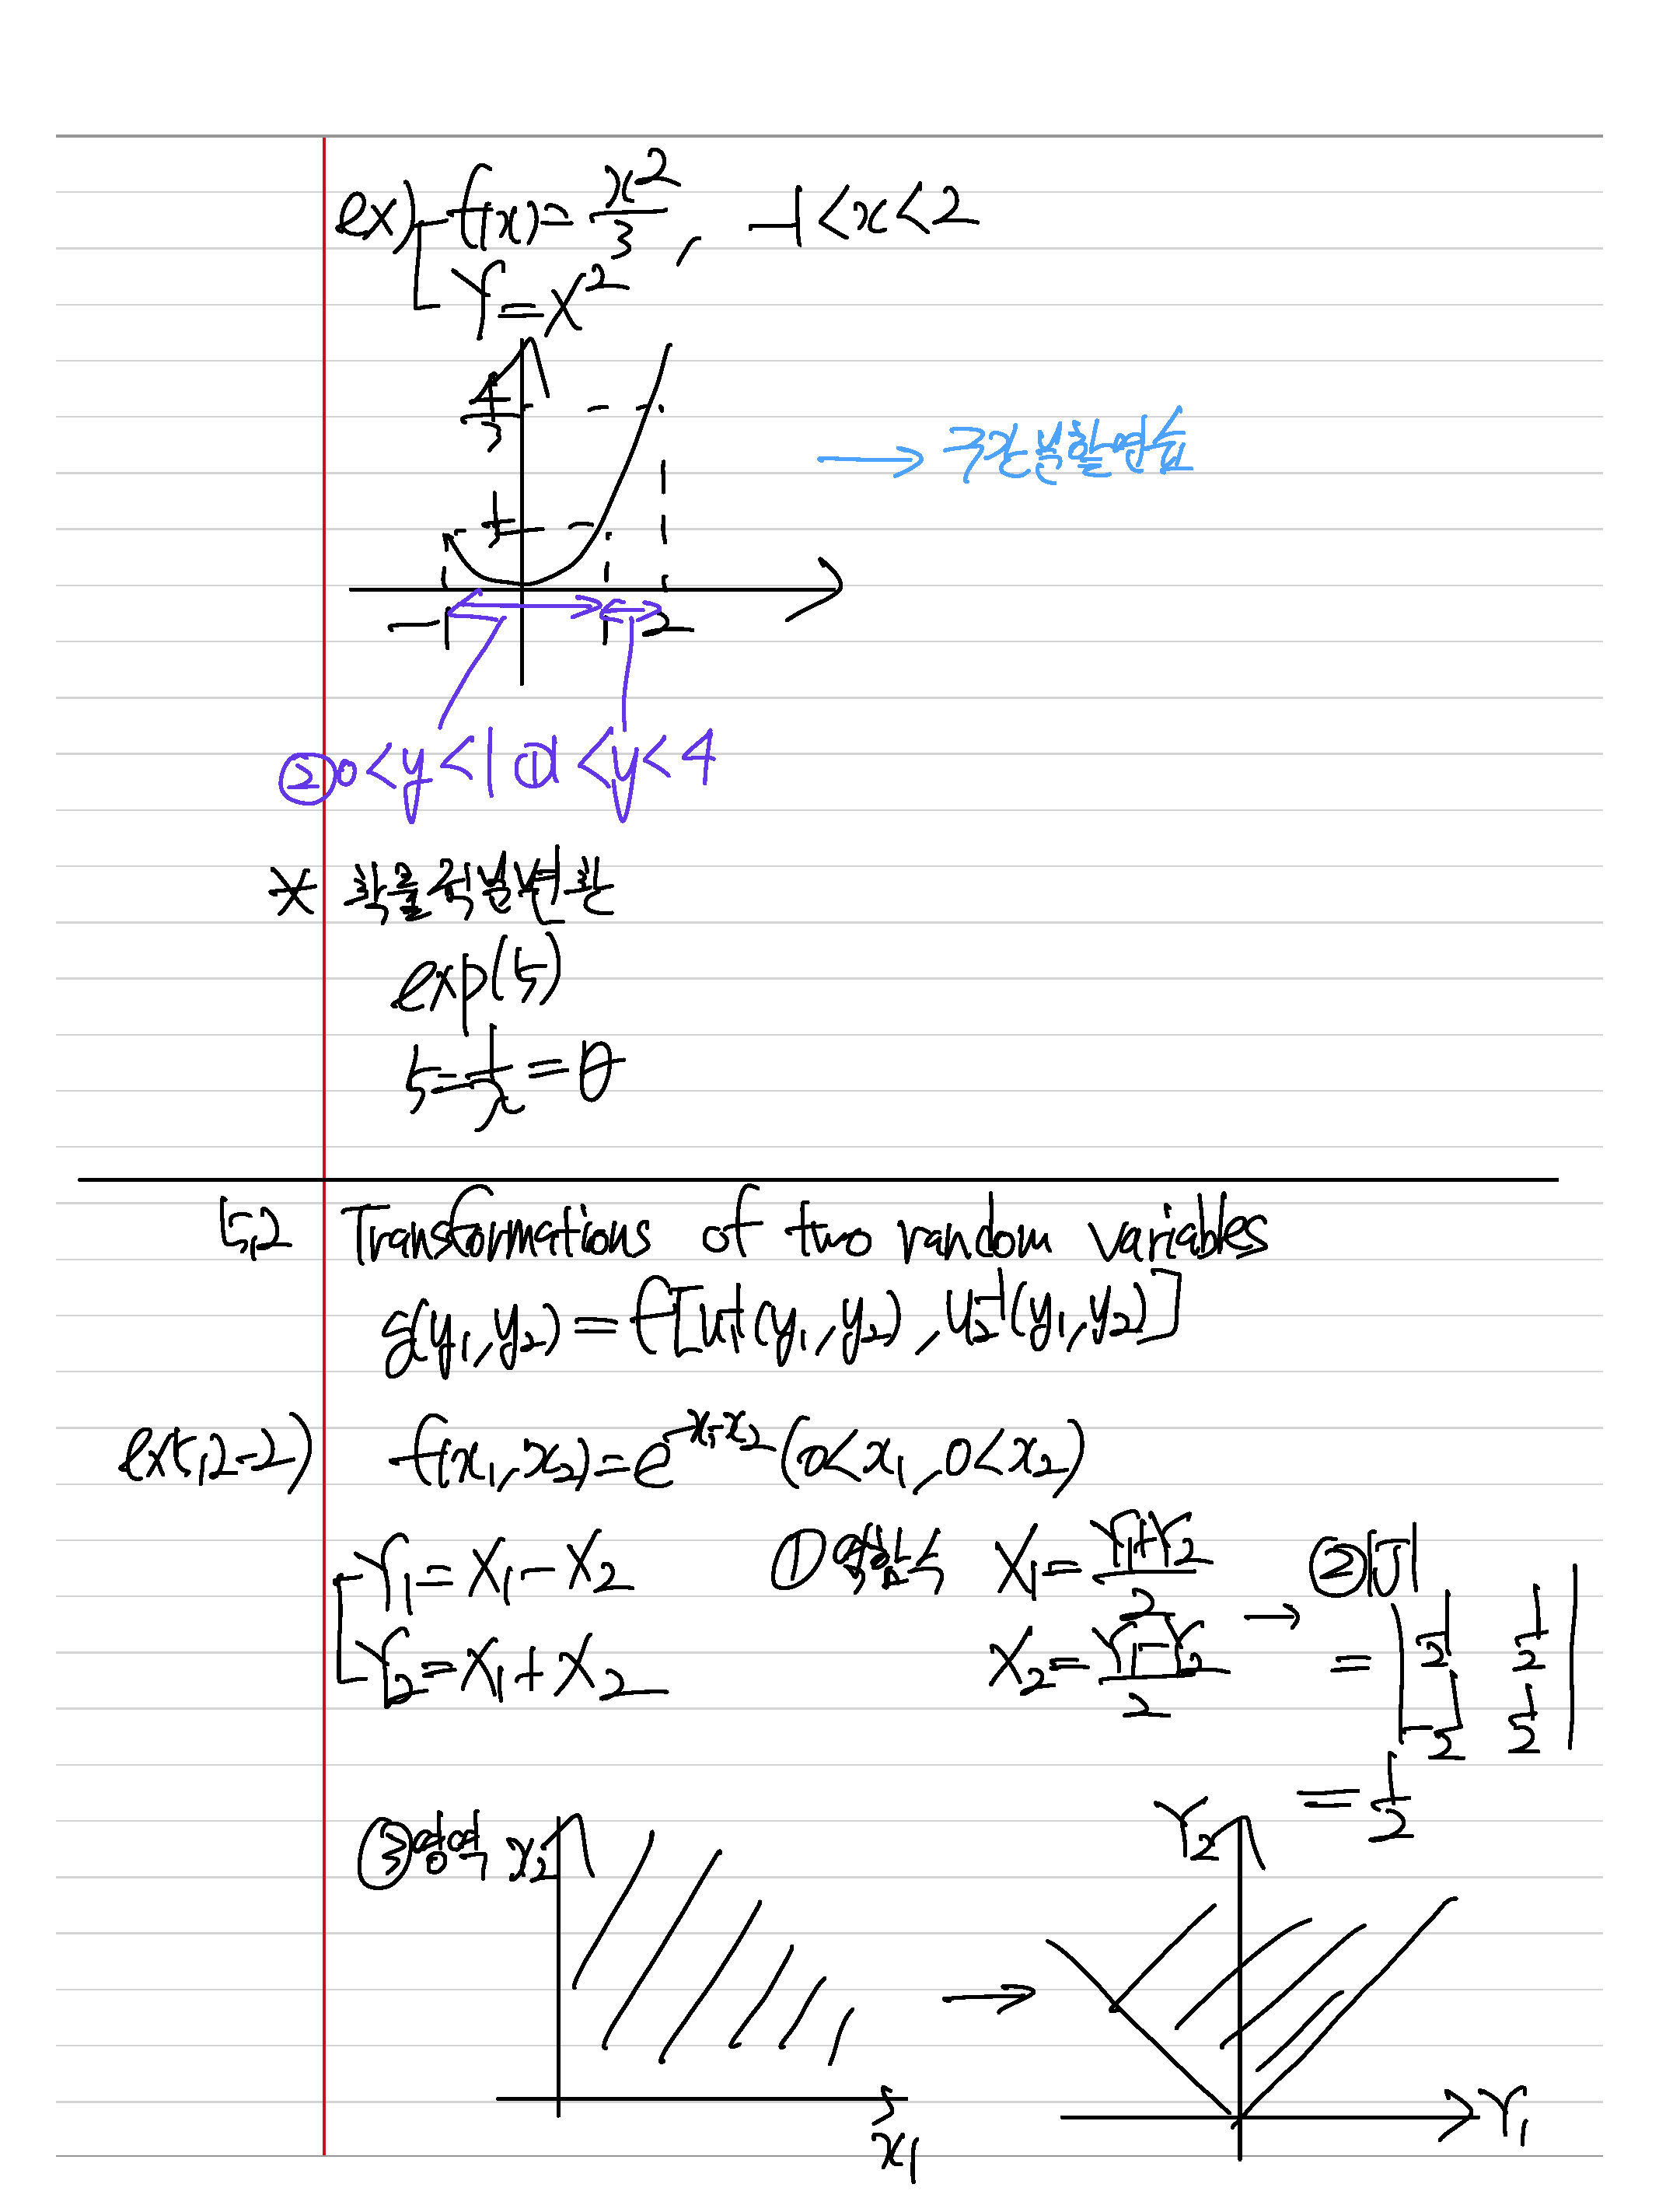 ex) f(x) = x²/3, -1 < x < 2
Y = X²
4/3
→ 구간분할연습
1/3
-1 1 2
② 0 < y < 1 ① 1 < y < 4
* 확률적분변환
exp(5)
5 = 1/λ = θ
5.2 Transformations of two random variables
g(y₁, y₂) = f[u₁⁻¹(y₁, y₂), u₂⁻¹(y₁, y₂)]
ex5.2-2) f(x₁, x₂) = e^(-x₁-x₂) (0 < x₁, 0 < x₂)
Y₁ = X₁ - X₂ ① 역함수 X₁ = (Y₁+Y₂)/2 → ② |J|
Y₂ = X₁ + X₂ X₂ = (Y₁-Y₂)/2 = | 1/2 1/2 |
| -1/2 1/2 |
= 1/2
③ 영역 x₂ → Y₂
x₁ Y₁